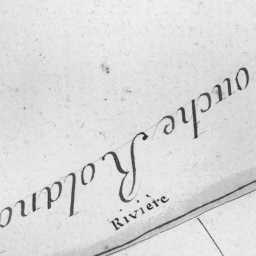 ouche Roland
Rivière